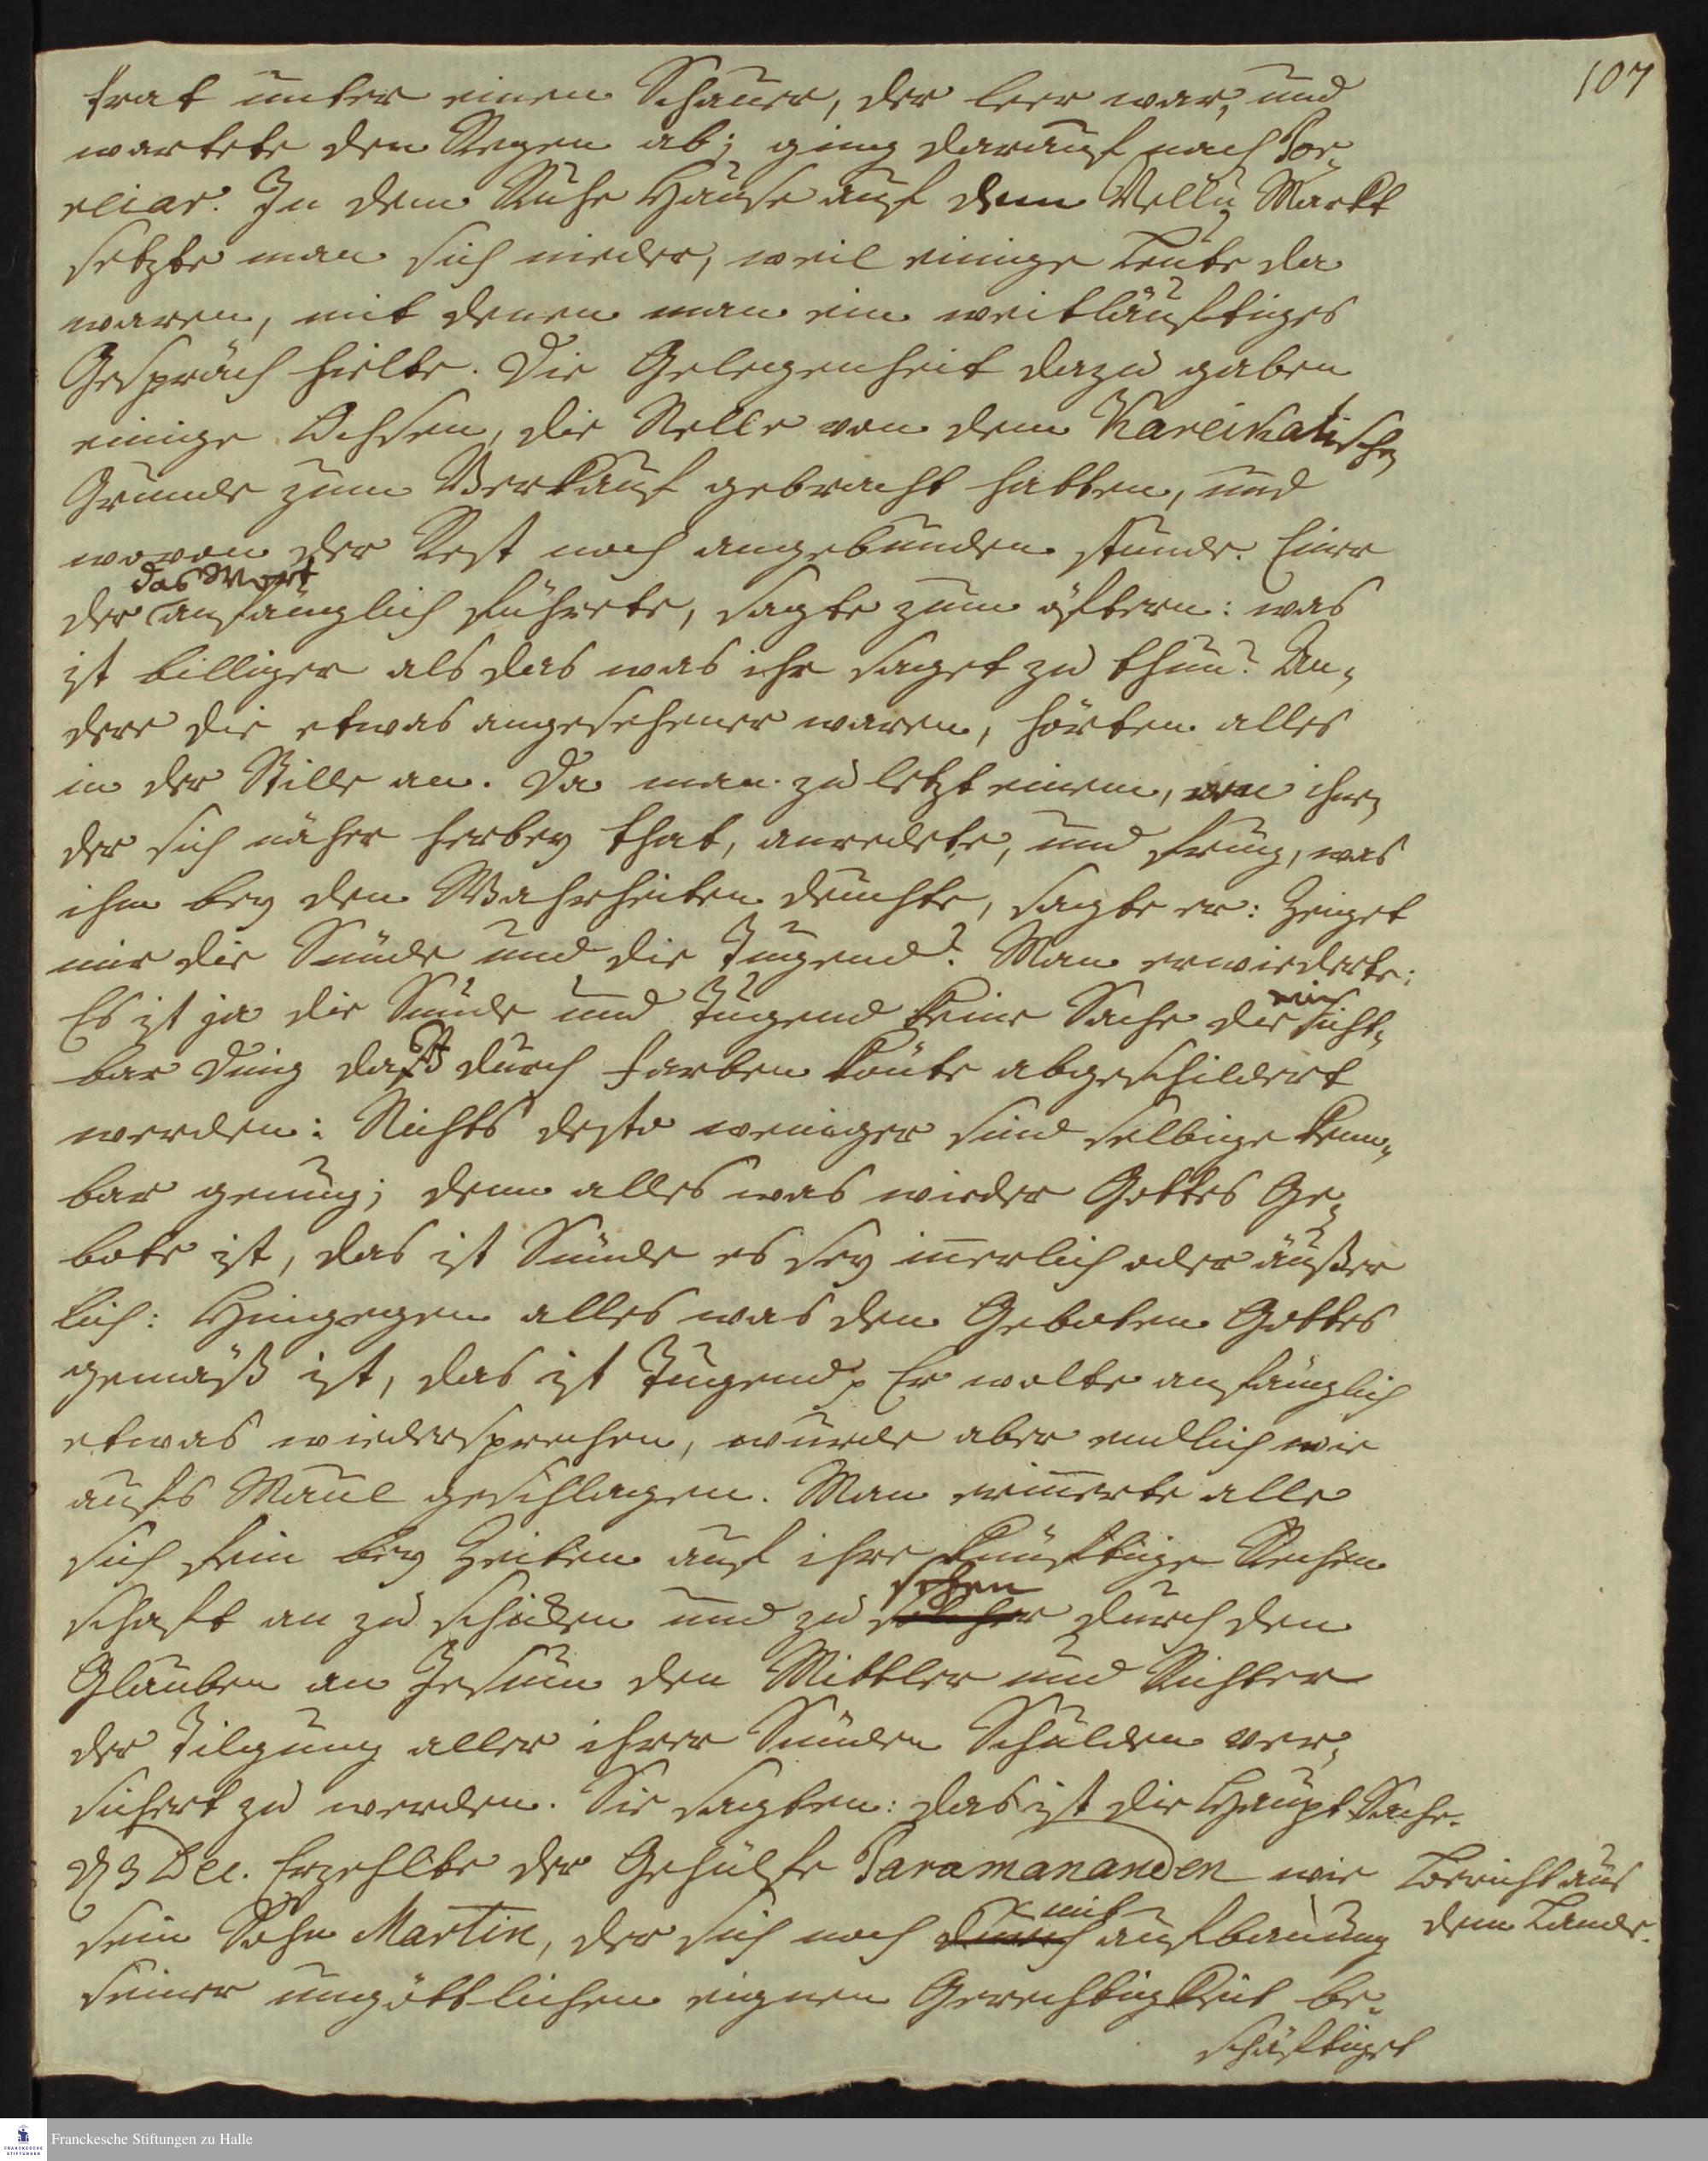 107
trat unter einen Schauer, der leer war, und
wartete den Regen ab; ging darauf nach Por-
eiar. In dem Ruhe Hause auf dem Nellu Markt
setzte man sich nieder, weil einige Leute da
waren, mit denen man ein weitläuftiges
Gespräch hielte. Die Gelegenheit dazu gaben
einige Ochsen, die Nelle von dem Kareikalischen
Grunde zum Verkauf gebracht hatten, und
wovon der Rest noch angebunden stunde. Einer
das Wort
der anfänglich führete, sagte zum öftern: was
ist billiger als das was ihr saget zu thun? An-
dere die etwas angesehener waren, hörten alles
in der Stille an. Da man zu letzt einem, von ihnen
der sich näher herbey that, anredete, und frug, was
ihm bey den Wahrheiten deuchte, sagte er: Zeiget
mir die Sünde und die Tugend? Man erwiederte:
Es ist ja die Sünde und Tugend keine Sache die sicht-
bar Ding daß durch Farben könte abgeschildert
werden: Nichts desto weniger sind selbige kenn-
bar genug; denn alles was wieder Gottes Ge-
bote ist, das ist Sünde es sey innerlich oder äußer
lich: Hingegen alles was den Geboten Gottes
gemäß ist, das ist Tugend. Er wolte anfänglich
etwas wiedersprechen, wurde aber endlich wie
aufs Maul geschlagen. Man erinnerte alle
sich fein bey Zeiten auf ihre künftige Rechen
schafft an zu schicken und zu
sehen
durch den
Glauben an Jesum den Mittler und Richter
der Tilgung aller ihrer Sünden Schulden ver-
sichert zu werden. Sie sagten: das ist die Haupt Sache.
3 Dec. Erzehlte der Gehülfe Paramananden wie
Bericht aus
dem Lande.
mit
sein Sohn Martin, der sich noch durch aufbauung
seiner ungöttlichen eignen Gerechtigkeit be-
schäftiget
FRANCKESCHE STIFTUNGEN
Franckesche Stiftungen zu Halle